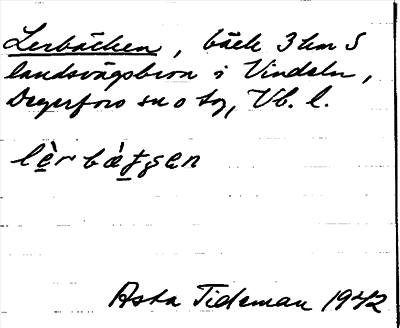 Lerbäcken, bäck 3 km S
landsvägsbron i Vindeln,
Degerfors sn o tg, Vb. l.
lèrbàtsen
Asta Tideman 1942